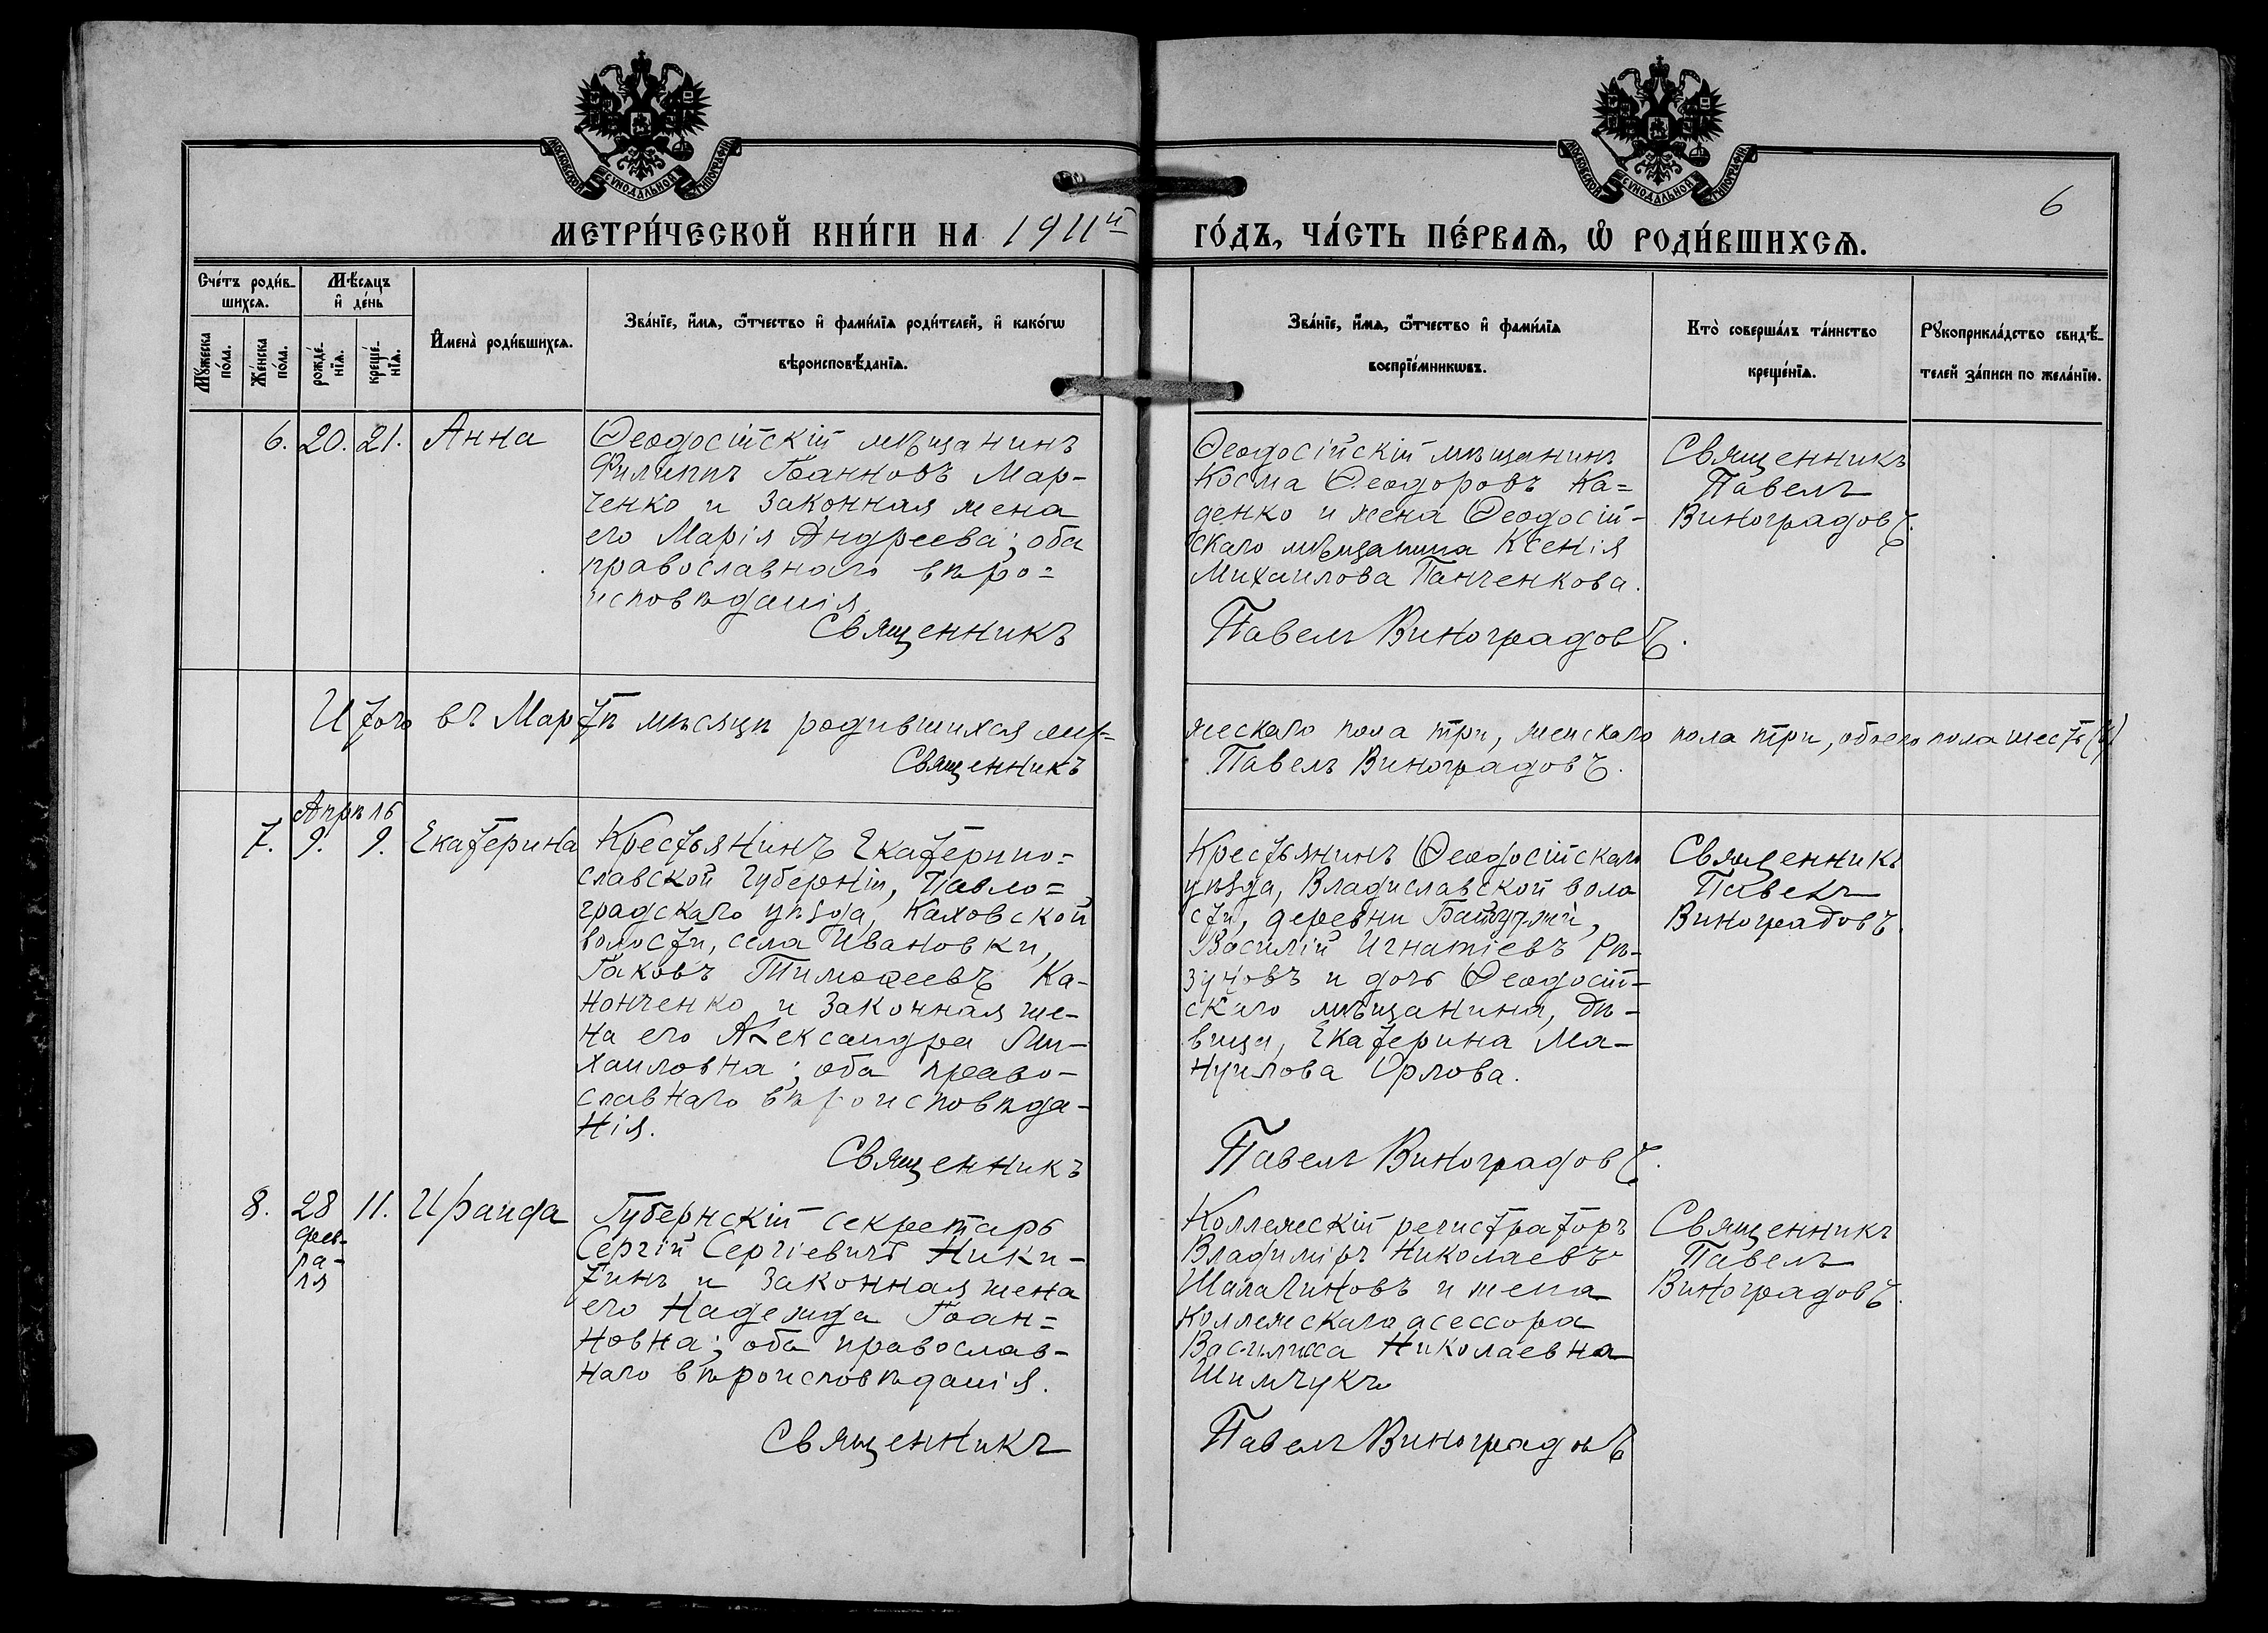 МОСКОВСКОЙ СѴНОДАЛЬНОЙ ТИПОГРАФІИ
МОСКОВСКОЙ СѴНОДАЛЬНОЙ ТИПОГРАФІИ
6
МЕТРИ́ЧЕСКОЙ КНИ́ГИ НА 1911й
ГО́ДЪ, ЧА́СТЬ ПЕ́РВАѦ, Ѡ҆ РОДИ́ВШИХСѦ.
Сче́тъ роди́в-
шихсѧ.
Мѣ́сѧцъ
и҆ де́нь
Мꙋ́жеска
по́ла.
Же́нска
по́ла.
рожде́-
нїѧ.
креще́-
нїѧ.
И҆мена̀ роди́вшихсѧ.
Зва́нїе, и҆́мѧ, ѻ҆́тчество и҆ фами́лїѧ роди́телей, и҆ како́гѡ
вѣроисповѣ́данїѧ.
Зва́нїе, и҆́мѧ, ѻ҆́тчество и҆ фами́лїѧ
воспрїе́мникѡвъ.
Кто̀ соверша́лъ та́инство
креще́нїѧ.
Рꙋкоприкла́дство свидѣ́-
телей за́писи по жела́нїю.
6. 20. 21. Анна
Ѳеодосійскій мѣщанинъ
Филиппъ Іоанновъ Мар-
ченко и законная жена
его Марія Андреева; оба
православнаго вѣро=
исповѣданія.
Священникъ
Ѳеодосійскій мѣщанинъ
Косма Ѳеодоровъ Ка=
денко и жена Ѳеодосій-
скаго мѣщанина Ксенія
Михаилова Панченкова.
Павелъ Виноградовъ.
Священникъ
Павелъ
Виноградовъ.
Итого въ Мартѣ мѣсяцѣ родившихся муж=
жескаго пола три, женскаго пола три, обоего пола шесть (6)
Священникъ
Павелъ Виноградовъ.
Апрѣль
7. 9. 9. Екатерина
Крестьянинъ Екатерино=
славской губерніи, Павло=
градскаго уѣзда, Каховской
волости, села Ивановки,
Іаковъ Тимоѳеевъ Ка-
нонченко и законная же-
на его Александра Ми-
хаиловна; оба право-
славнаго вѣроисповѣда-
нія.
Священникъ
Крестьянинъ Ѳеодосійскаго
уѣзда, Владиславской воло
сти, деревни
Василій Игнатіевъ Рѣ-
зуновъ и дочь Ѳеодосій-
скаго мѣщанина, дѣ-
вица, Екатерина Ма-
нуилова Орлова.
Павелъ Виноградовъ.
Священникъ
Павелъ
Виноградовъ.
8. 28 11. Ираида
фев-
ра-
ля
Губернскій секретарь
Сергій Сергіевичъ Ники-
тинъ и законная жена
его Надежда Іоан=
новна; оба православ-
наго вѣроисповѣданія.
Священникъ
Коллежскій регистраторъ
Владиміръ Николаевъ
Шалагиновъ и жена
коллежскаго асессора
Василисса Николаевна
Шимчукъ
Павелъ Виноградовъ
Священникъ
Павелъ
Виноградовъ.